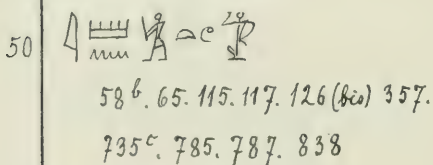 50 𓇋𓏠𓈖
58ᵇ. 65. 115. 117. 126 (bis) 357.
735ᶜ. 785. 787. 838